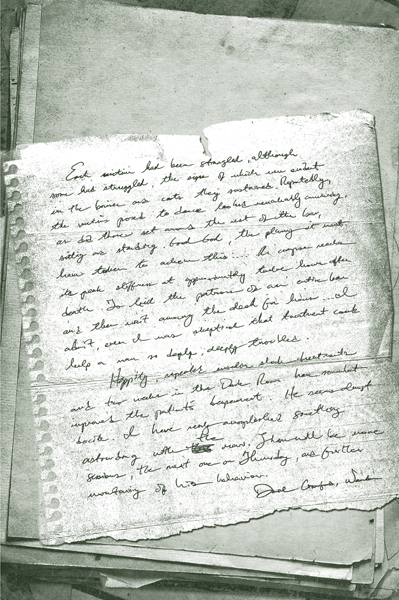 Each victim had been strangled, although
some had struggled, the signs of which were evident
in the bruises and cuts they sustained. Reputedly,
the victims posed to dance looked remarkably
as did those set around the rest of the bar,
sitting or standing. Good God, the planning it must
have taken to achieve this.... A corpse reaches
its peak stiffness at approximately twelve hours after
death. To kill the patrons of an entire bar
and then wait among the dead for hours...I
admit, even I was skeptical that treatment could
help a man so deeply, deeply troubled.
Happily, repeated insulin shock treatments
and two weeks in the Dark Room have somewhat
improved the patient's temperament. He seems almost
docile. I have really accomplished something
astounding with the man. There will be more
sessions, the next one on Thursday, and further
monitoring of his behavior.
Daniel Crawford, Warden